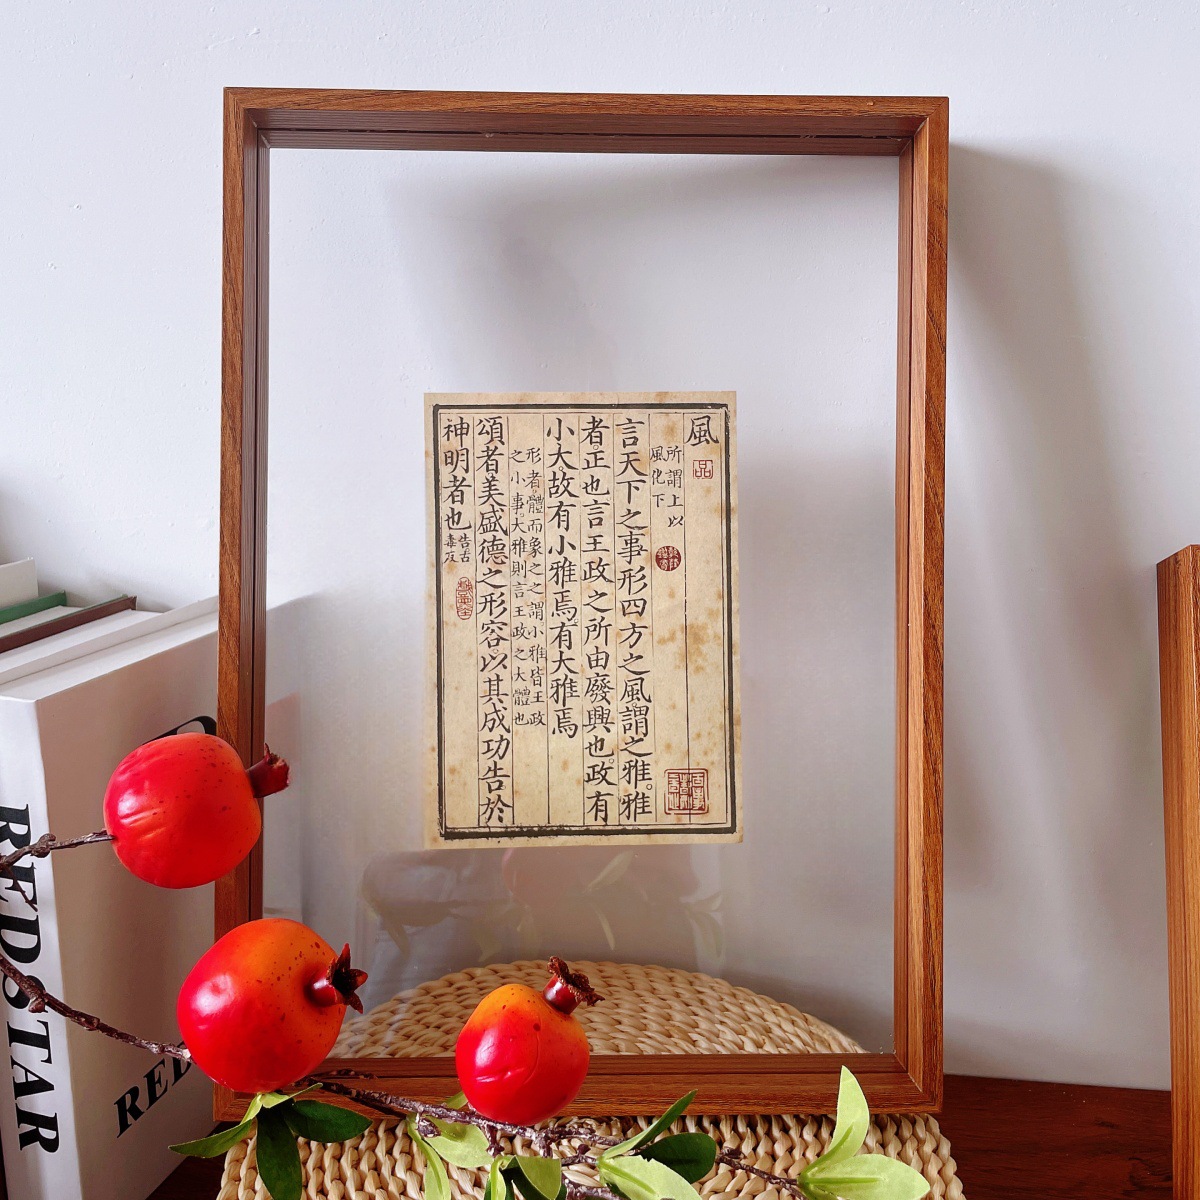 風
所謂上以
風化下
言天下之事形四方之風謂之雅。雅
者。正也言王政之所由廢興也。政有
小大。故有小雅焉。有大雅焉
形者。體而象之之謂小雅皆王政
之小事。大雅則言王政之大體也
頌者美盛德之形容。以其成功告於
神明者也
告古
毒反
品
REDSTAR